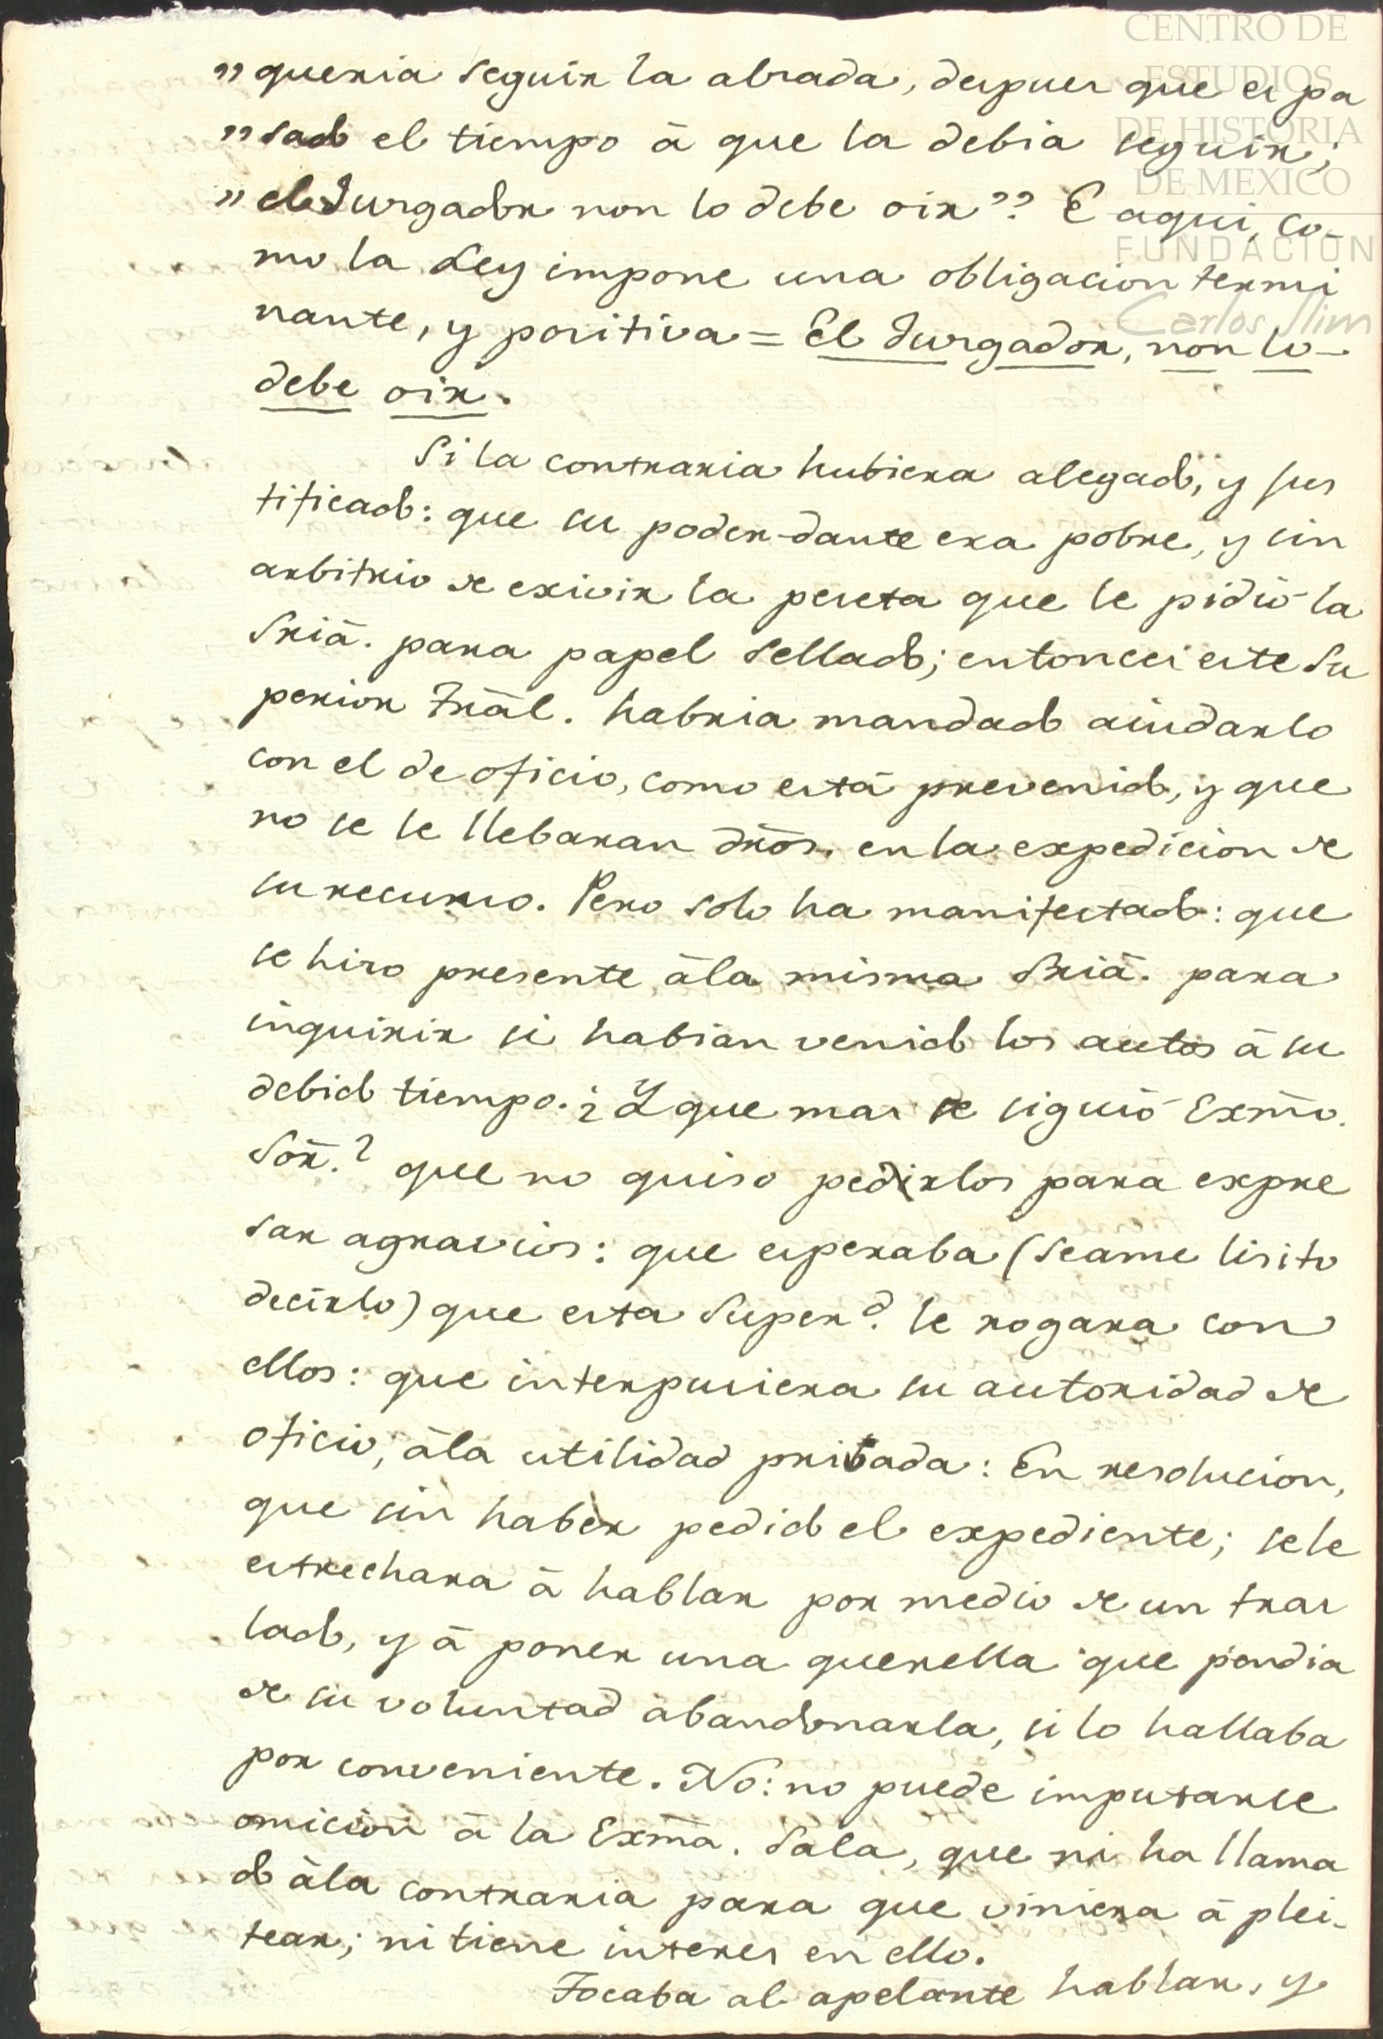 CENTRO DE
ESTUDIOS
DE HISTORIA
DE MEXICO
FUNDACION
Carlos Slim
" queria seguir la alzada, despues que es pa
" sado el tiempo â que la debia seguir;
" el Jurgador non lo debe oir" E aqui, co-
mo la Ley impone una obligacion termi
nante, y positiva = El Jurgador, non lo
debe oir.
Si la contraria hubiera alegado, y jus
tificado: que su poder-dante era pobre, y sin
arbitrio de exivir la peseta que le pidió la
Sriâ. para papel sellado; entonces este Su
perior Trâl. habria mandado aiudarlo
con el de oficio, como estâ prevenido, y que
no se le llebaran drôs. en la expedicion de
su recurso. Pero solo ha manifestado: que
se hizo presente âla misma Sriâ. para
inquirir si habian venido los autos â su
debido tiempo. ¿Y que mas se siguió Exmô.
Sôr.? que no quiso pedirlos para expre
sar agravios: que esperaba (seame lisito
decirlo) que esta Superd. le rogara con
ellos: que interpusiera su autoridad de
oficio, âla utilidad pribada: En resolucion,
que sin haber pedido el expediente; se le
estrechara â hablar por medio de un tras
lado, y â poner una querella que pendia
de su voluntad abandonarla, si lo hallaba
por conveniente. No: no puede imputarse
omicion â la Exmâ. Sala, que ni ha llama
do âla contraria para que viniera â plei-
tear; ni tiene interes en ello.
Tocaba al apelante hablar, y